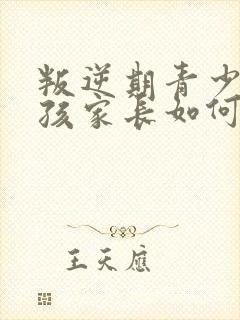 叛逆期青少
孩家长如何
王天应